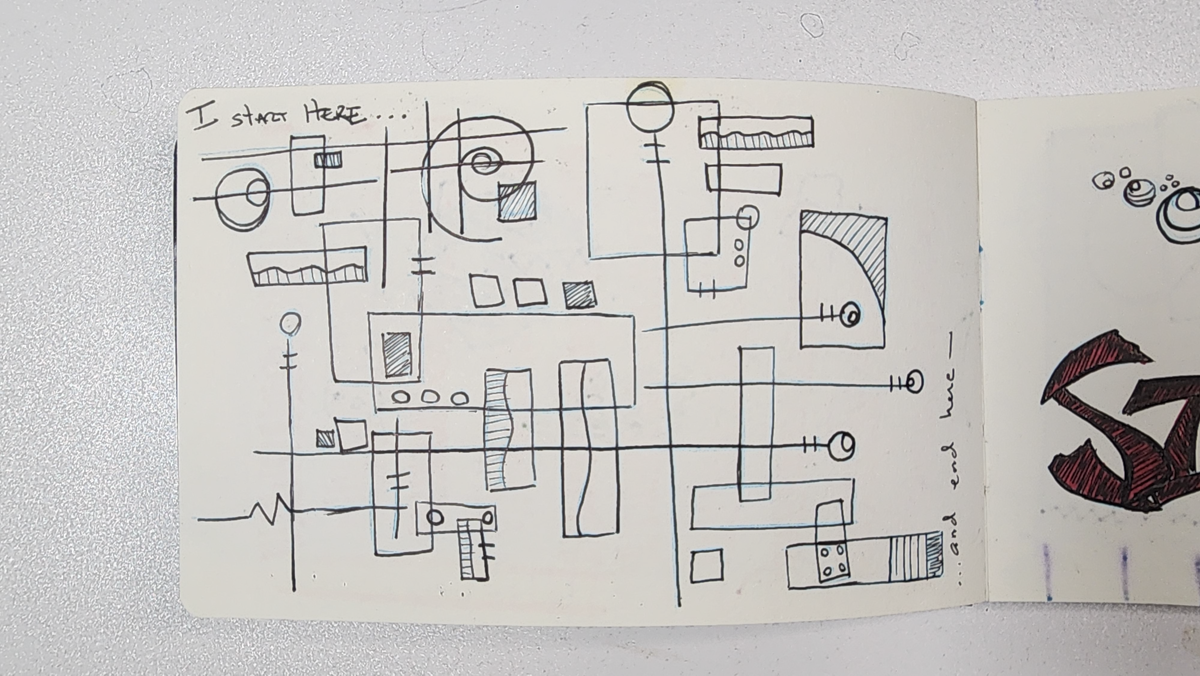 I START HERE...
...and end here—